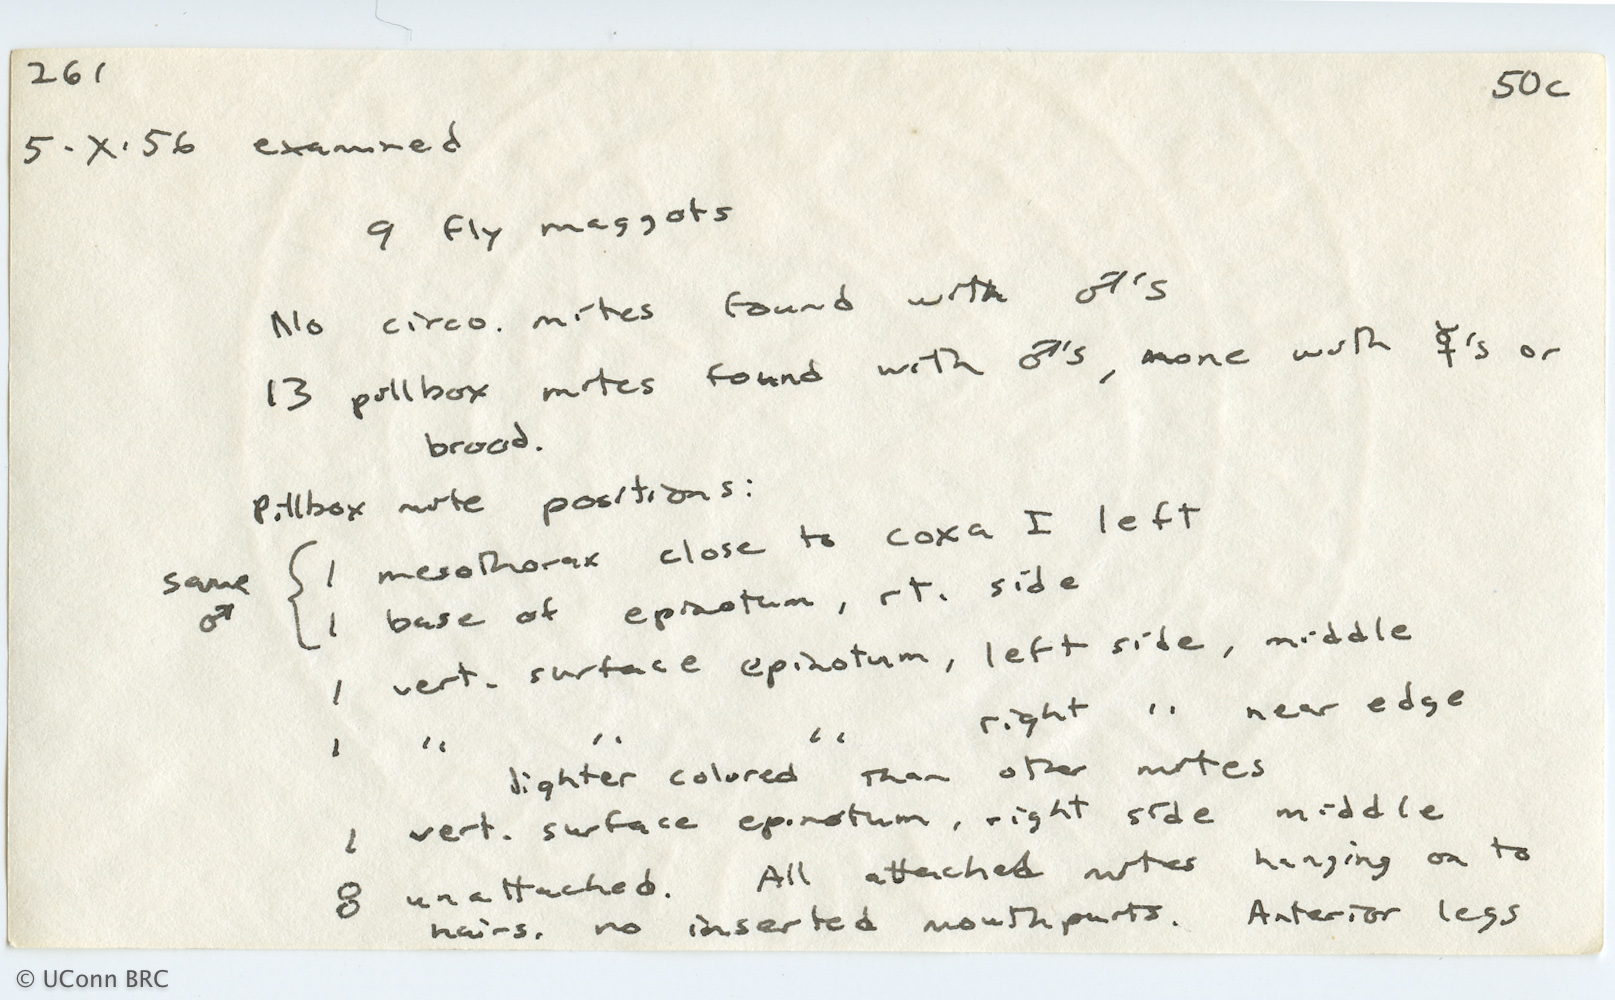 261
50c
5.X.56 examined
9 fly maggots
No circo. mites found with ♂'s
13 pillbox mites found with ♂'s, none with ☿'s or
brood.
Pillbox mite positions:
same ♂ { 1 mesothorax close to coxa I left
1 base of epinotum, rt. side
1 vert. surface epinotum, left side, middle
1 " " " right " near edge
lighter colored than other mites
1 vert. surface epinotum, right side middle
8 unattached. All attached mites hanging on to
hairs. no inserted mouthparts. Anterior legs
© UConn BRC